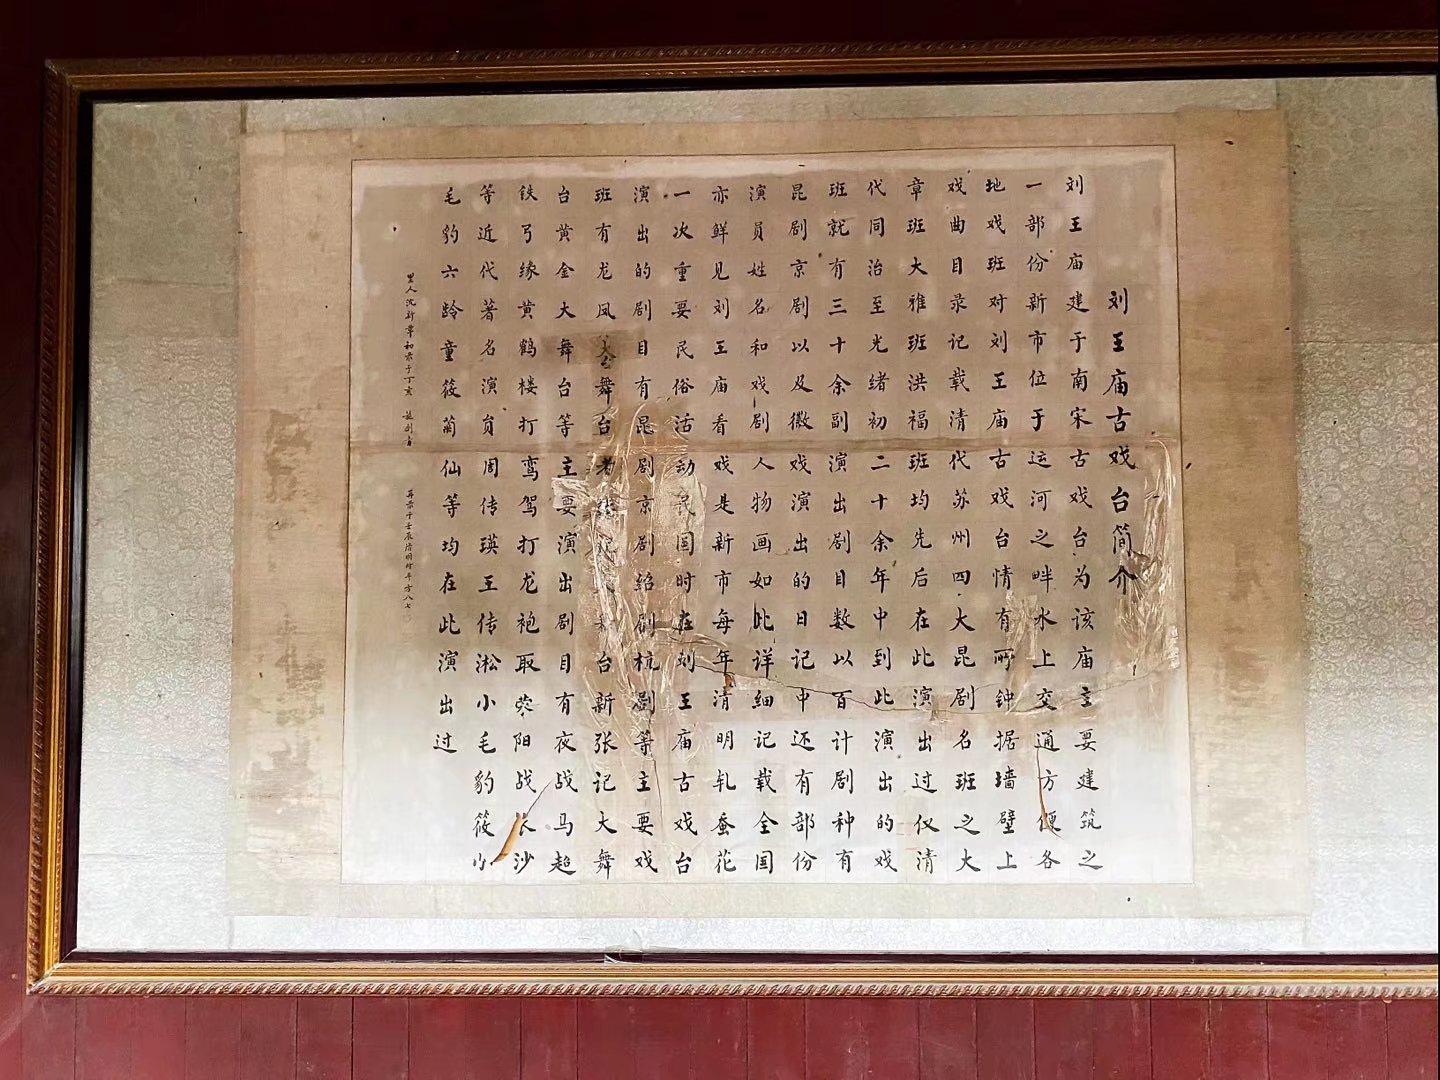 刘王庙古戏台简介
刘王庙建于南宋古戏台为该庙主要建筑之
一部份新市位于运河之畔水上交通方便各
地戏班对刘王庙古戏台情有所钟据墙壁上
戏曲目录记载清代苏州四大昆剧名班之大
章班大雅班洪福班均先后在此演出过仅清
代同治至光绪初二十余年中到此演出的戏
班就有三十余副演出剧目数以百计剧种有
昆剧京剧以及徽戏演出的日记中还有部份
演员姓名和戏剧人物画如此详细记载全国
亦鲜见刘王庙看戏是新市每年清明轧蚕花
一次重要民俗活动民国时在刘王庙古戏台
演出的剧目有昆剧京剧绍剧杭剧等主要戏
班有龙凤舞台台新张记大舞
台黄金大舞台等主要演出剧目有夜战马超
铁弓缘黄鹤楼打鸾驾打龙袍取荥阳战长沙
等近代著名演员周传瑛王传淞小毛豹筱小
毛豹六龄童筱兰仙等均在此演出过
里人沈新章初录于丁亥 再录于壬辰清明时年方八七